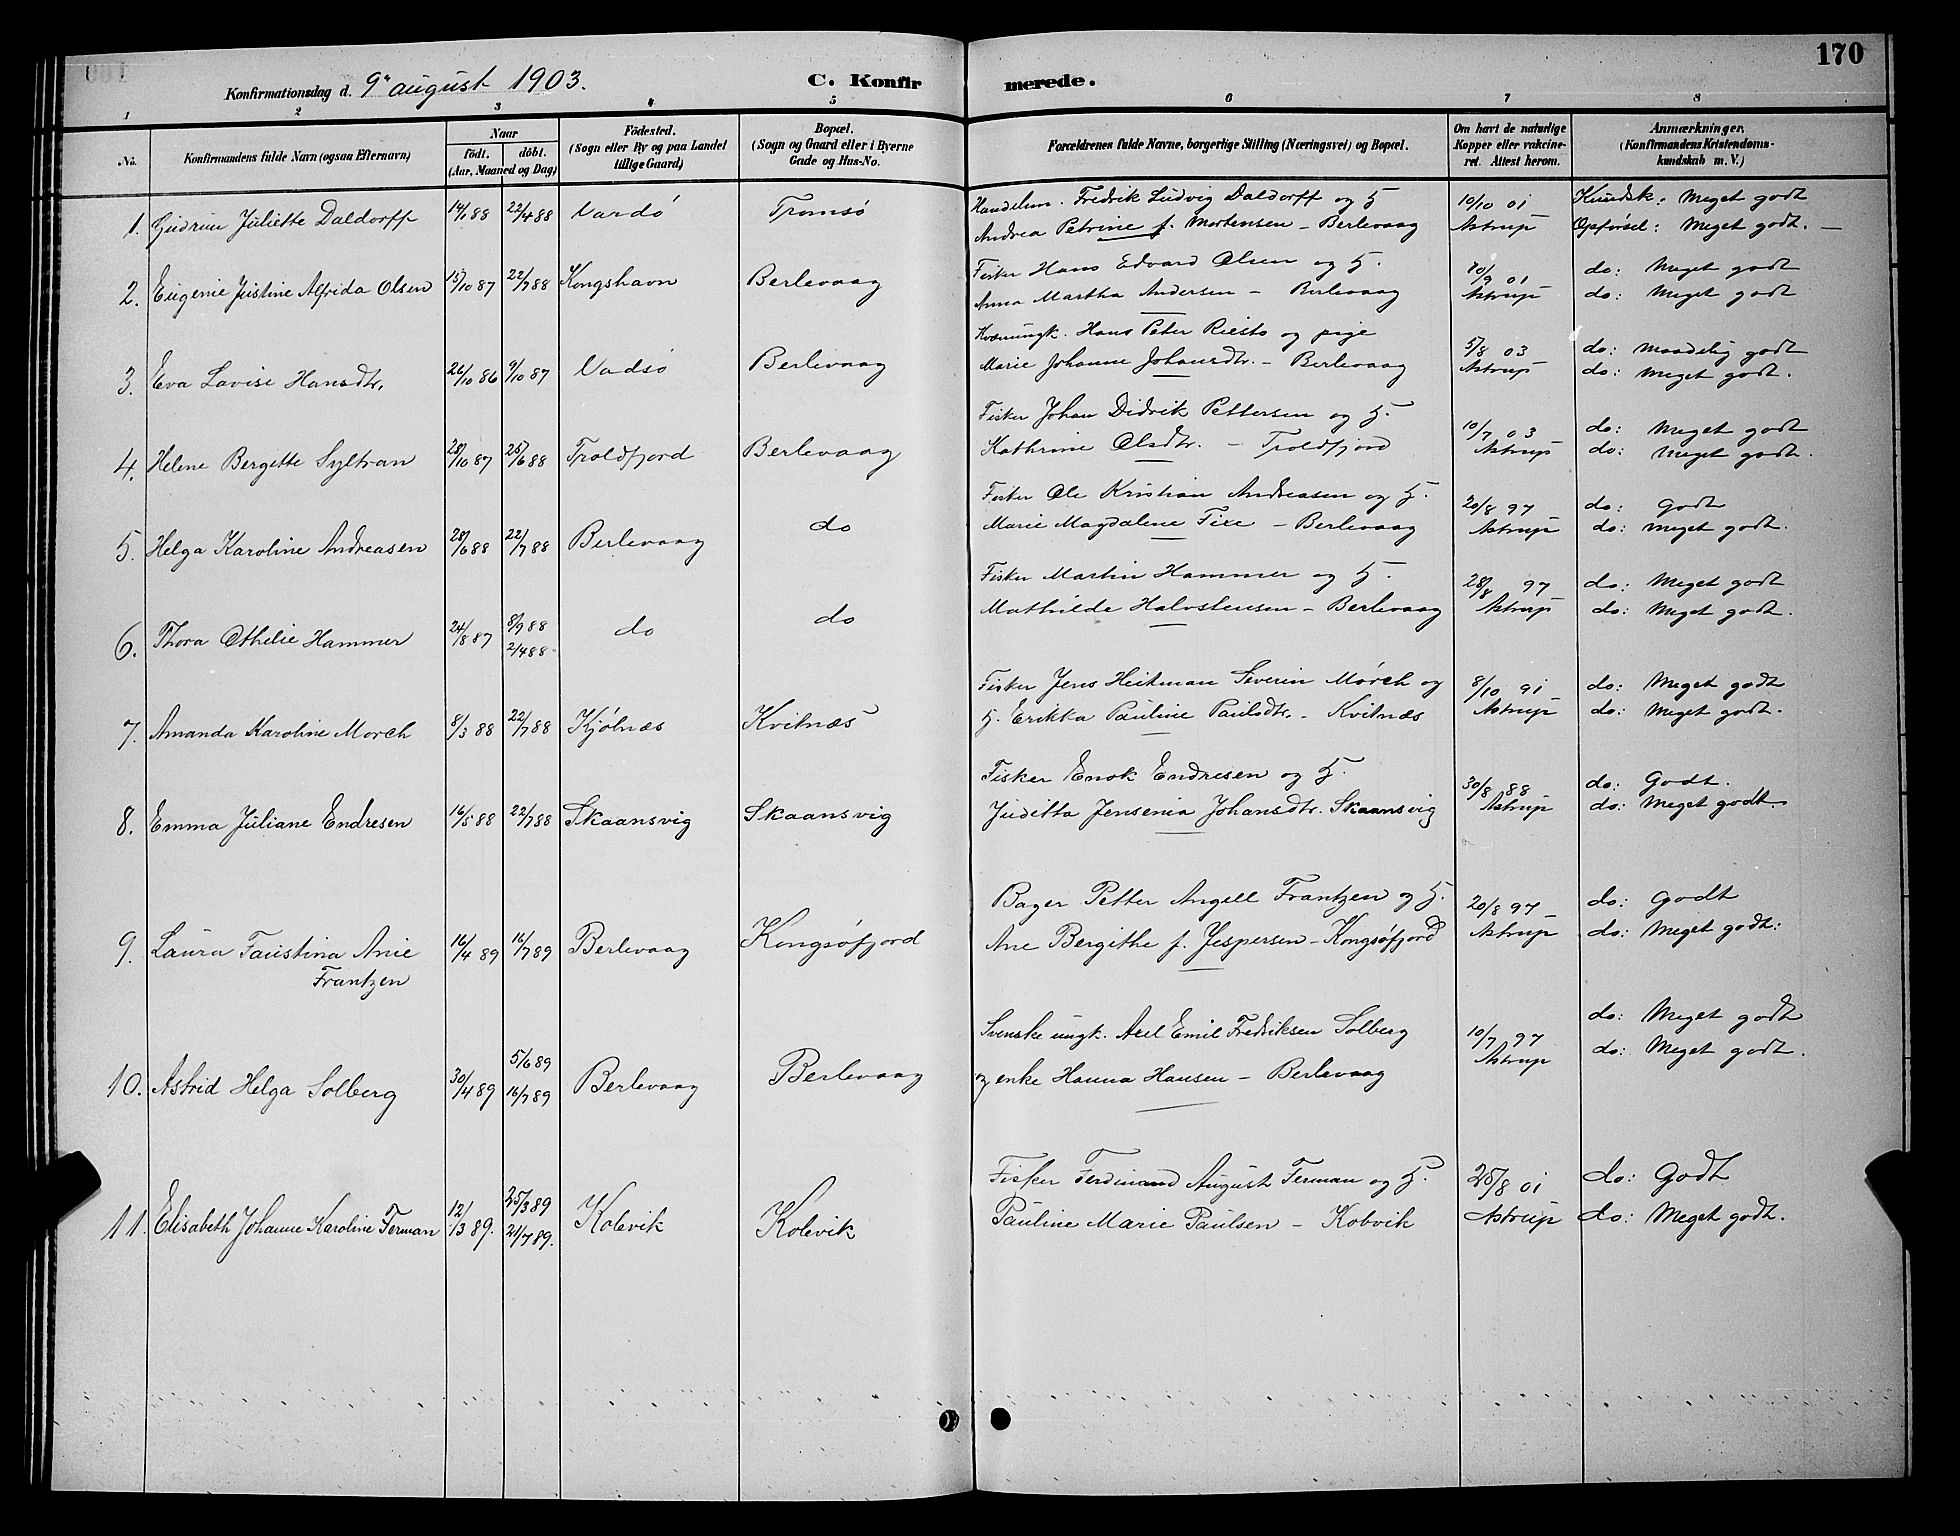 170
Konfirmationsdag d. 9de august 1903.
C. Konfirmerede.
1 2 3 4 5 6 7 8
No.
Konfirmandens fulde Navn (ogsaa Efternavn)
Naar
födt. döbt.
(Aar, Maaned og Dag)
Födested.
(Sogn eller By og paa Landet
tillige Gaard)
Bopæl.
(Sogn og Gaard eller i Byerne
Gade og Hus-No.
Forældrenes fulde Navne, borgerlige Stilling (Næringsvei) og Bopæl.
Om havt de naturlige
Kopper eller vakcine-
ret. Attest herom.
Anmærkninger.
(Konfirmandens Kristendoms-
kundskab m. V.)
Handelsm. Fredrik Ludvig Daldorff og H 10/10 01 Kundsk: Meget godt
1. Gudrun Juliette Daldorff 14/1 88 22/4 88 Vardö Tromsö Andrea Petrine f. Mortensen - Berlevaag Astrup Opförsel: Meget godt.
Fisker Hans Edvard Olsen og H. 10/9 01 do: Meget godt
2. Eugenie Justine Alfrida Olsen 15/10 87 22/7 88 Kongshavn Berlevaag Anna Martha Andersen - Berlevaag Astrup do: Meget godt
Kvænungk. Hans Peter Riesto og pige 5/8 03 do: Maadelig godt
3. Eva Lovise Hansdtr. 26/10 86 9/10 87 Vadsö Berlevaag Marie Johanne Johansdtr. - Berlevaag Astrup do: Meget godt.
Fisker Johan Didrik Pettersen og H. 10/7 03 do: Meget godt
4. Helene Bergette Syltran 28/10 87 25/6 88 Troldfjord Berlevaag Kathrine Olsdtr. - Troldfjord Astrup do: Meget godt.
Fisker Ole Kristian Andreasen og H. 20/8 97 do: Godt
5. Helga Karoline Andreasen 28/6 88 22/7 88 Berlevaag do Marie Magdalene Fixe - Berlevaag Astrup do: Meget godt.
Fisker Martin Hammer og H. 28/8 97 do: Meget godt
6. Thora Othelie Hammer 24/8 87 8/9 88 do do Mathilde Halvstensen - Berlevaag Astrup do: Meget godt.
2/4 88
Fisker Jens Heitman Severin Mörch og 8/10 91 do: Meget godt
7. Amanda Karoline Morch 8/3 88 22/7 88 Kjölnæs Kvitnæs H. Erikka Pauline Paulsdtr. - Kvitnæs Astrup do: Meget godt.
Fisker Enok Endresen og H. 30/8 88 do: Godt.
8. Emma Juliane Endresen 16/5 88 22/7 88 Skaansvig Skaansvig Juditta Jensenia Johansdtr. Skaansvig Astrup do: Meget godt.
Bager Petter Angell Frantzen og H. 20/8 97 do: Godt
9. Laura Faustina Anie 16/4 89 16/7 89 Berlevaag Kongsöfjord Ane Bergithe f. Jespersen - Kongsöfjord Astrup do: Meget godt.
Frantzen
Svenske ungk. Axel Emil Fredriksen Solberg 10/7 97 do: Meget godt
5/6 89
10. Astrid Helga Solberg 30/4 89 16/7 89 Berlevaag Berlevaag og enke Hanna Hansen - Berlevaag Astrup do: Meget godt.
Fisker Ferdinand August Ferman og H. 25/8 01 do: Godt
25/3 89
11. Elisabeth Johanne Karoline Ferman 12/3 89. 21/7 89. Kobvik Kobvik Pauline Marie Paulsen - Kobvik Astrup do: Meget godt.